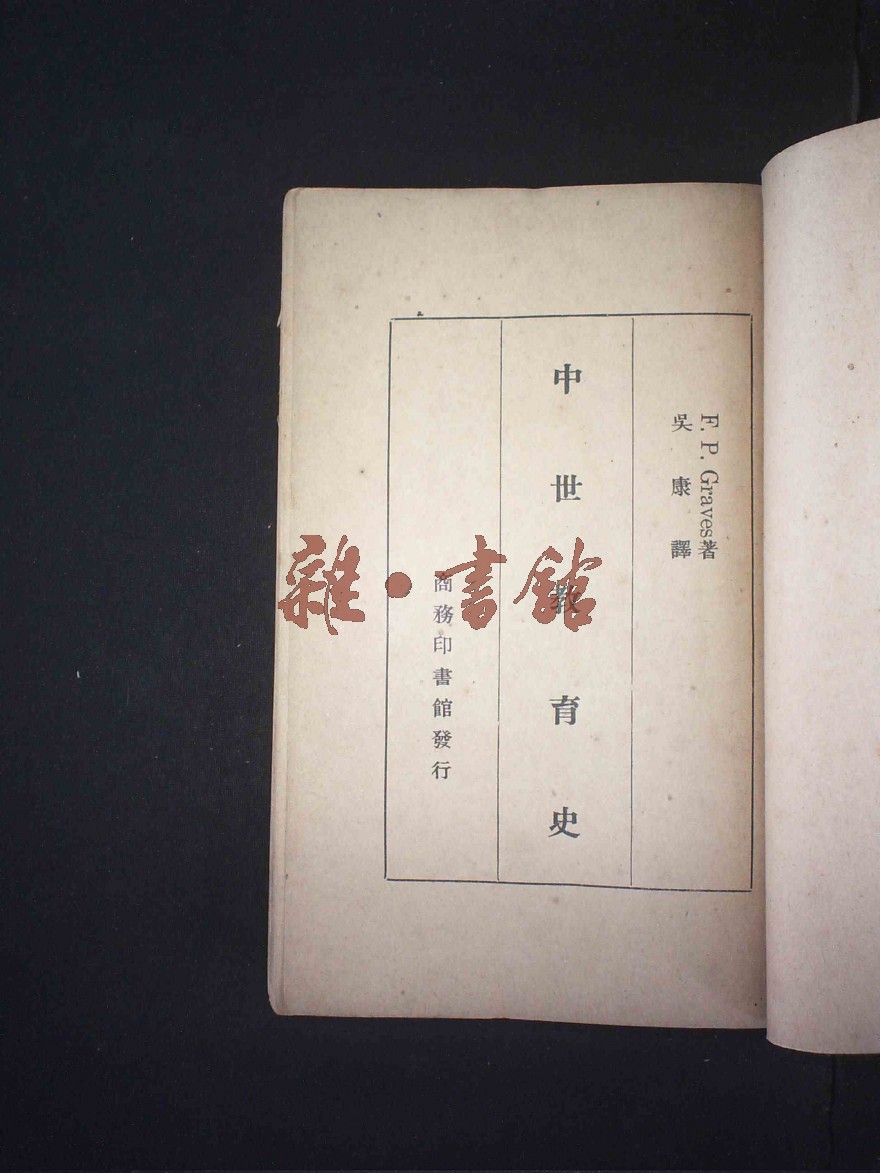 F. P. Graves著
吳康譯
中世教育史
商務印書館發行
雜·書館